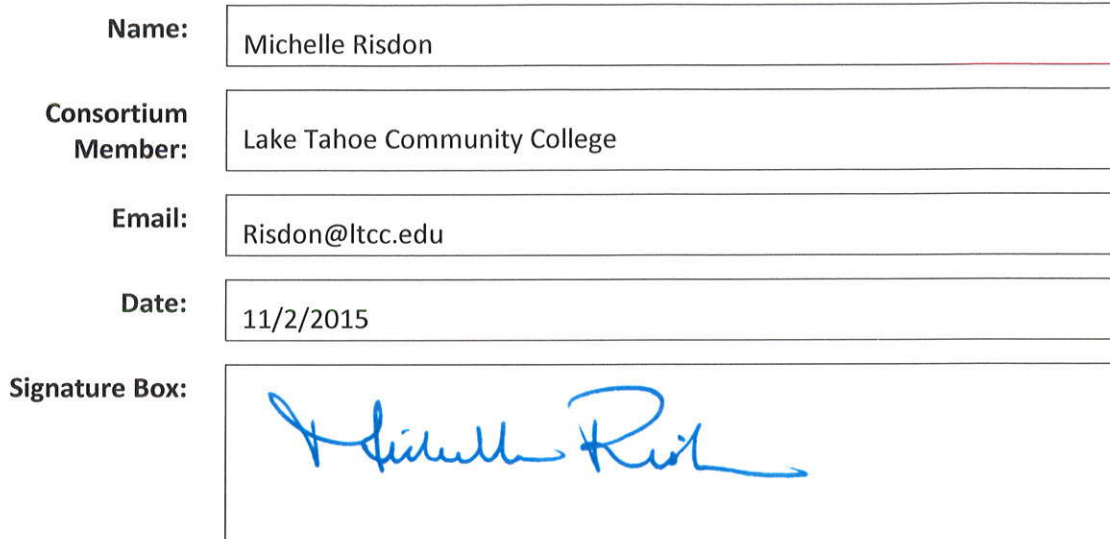 Name: Michelle Risdon
Consortium
Member: Lake Tahoe Community College
Email: Risdon@ltcc.edu
Date: 11/2/2015
Signature Box: Michelle Risdon